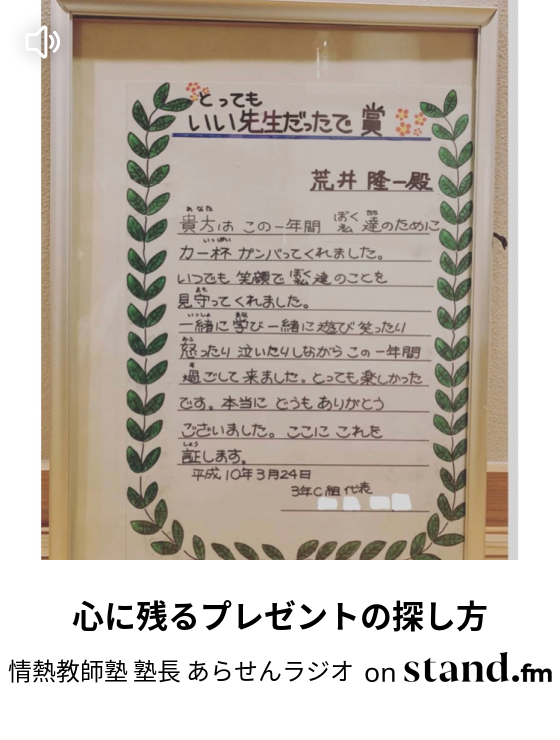 とっても
いい先生だったで賞
荒井 隆一殿
貴方は この一年間 僕 私 達のために
あなた ぼく たち
力一杯 ガンバってくれました。
いっぱい
いつでも 笑顔で 僕 私 達のことを
見守ってくれました。
まも
一緒に 学び 一緒に 遊び 笑ったり
いっしょ まな
怒ったり 泣いたりしながら この一年間
おこ
過ごして 来ました。とっても 楽しかった
す
です。本当に どうも ありがとう
ございました。ここに これを
証します。
しょう
平成10年3月24日
3年C組 代表
心に残るプレゼントの探し方
情熱教師塾 塾長 あらせんラジオ on stand.fm